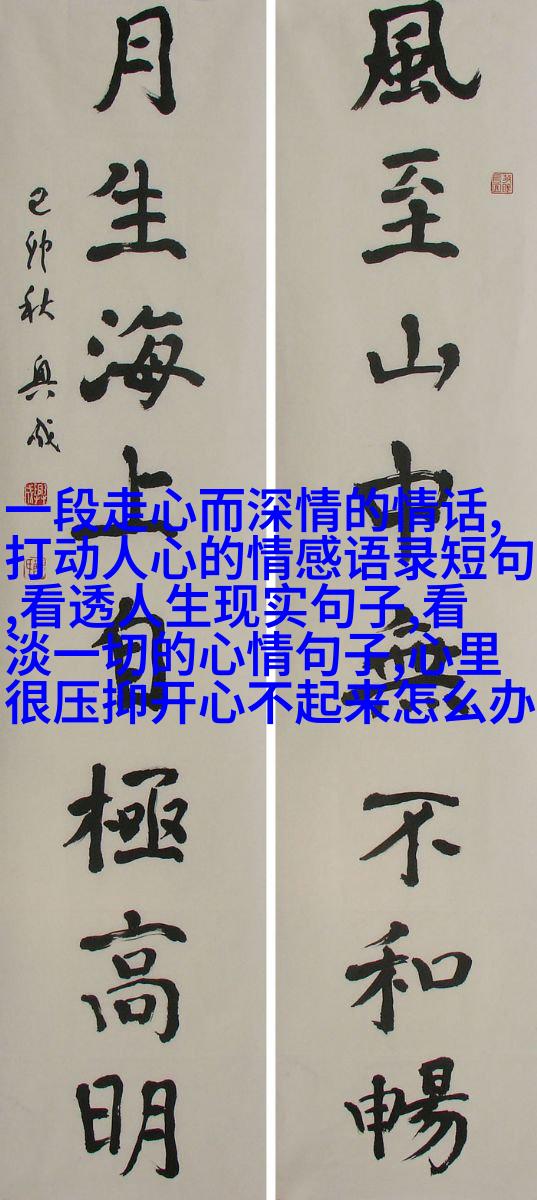 風至山中無不和暢
月生海上自極高明
己卯秋
一段走心而深情的情话,
打动人心的情感语录短句
,看透人生现实句子,看
淡一切的心情句子,心里
很压抑开心不起来怎么办